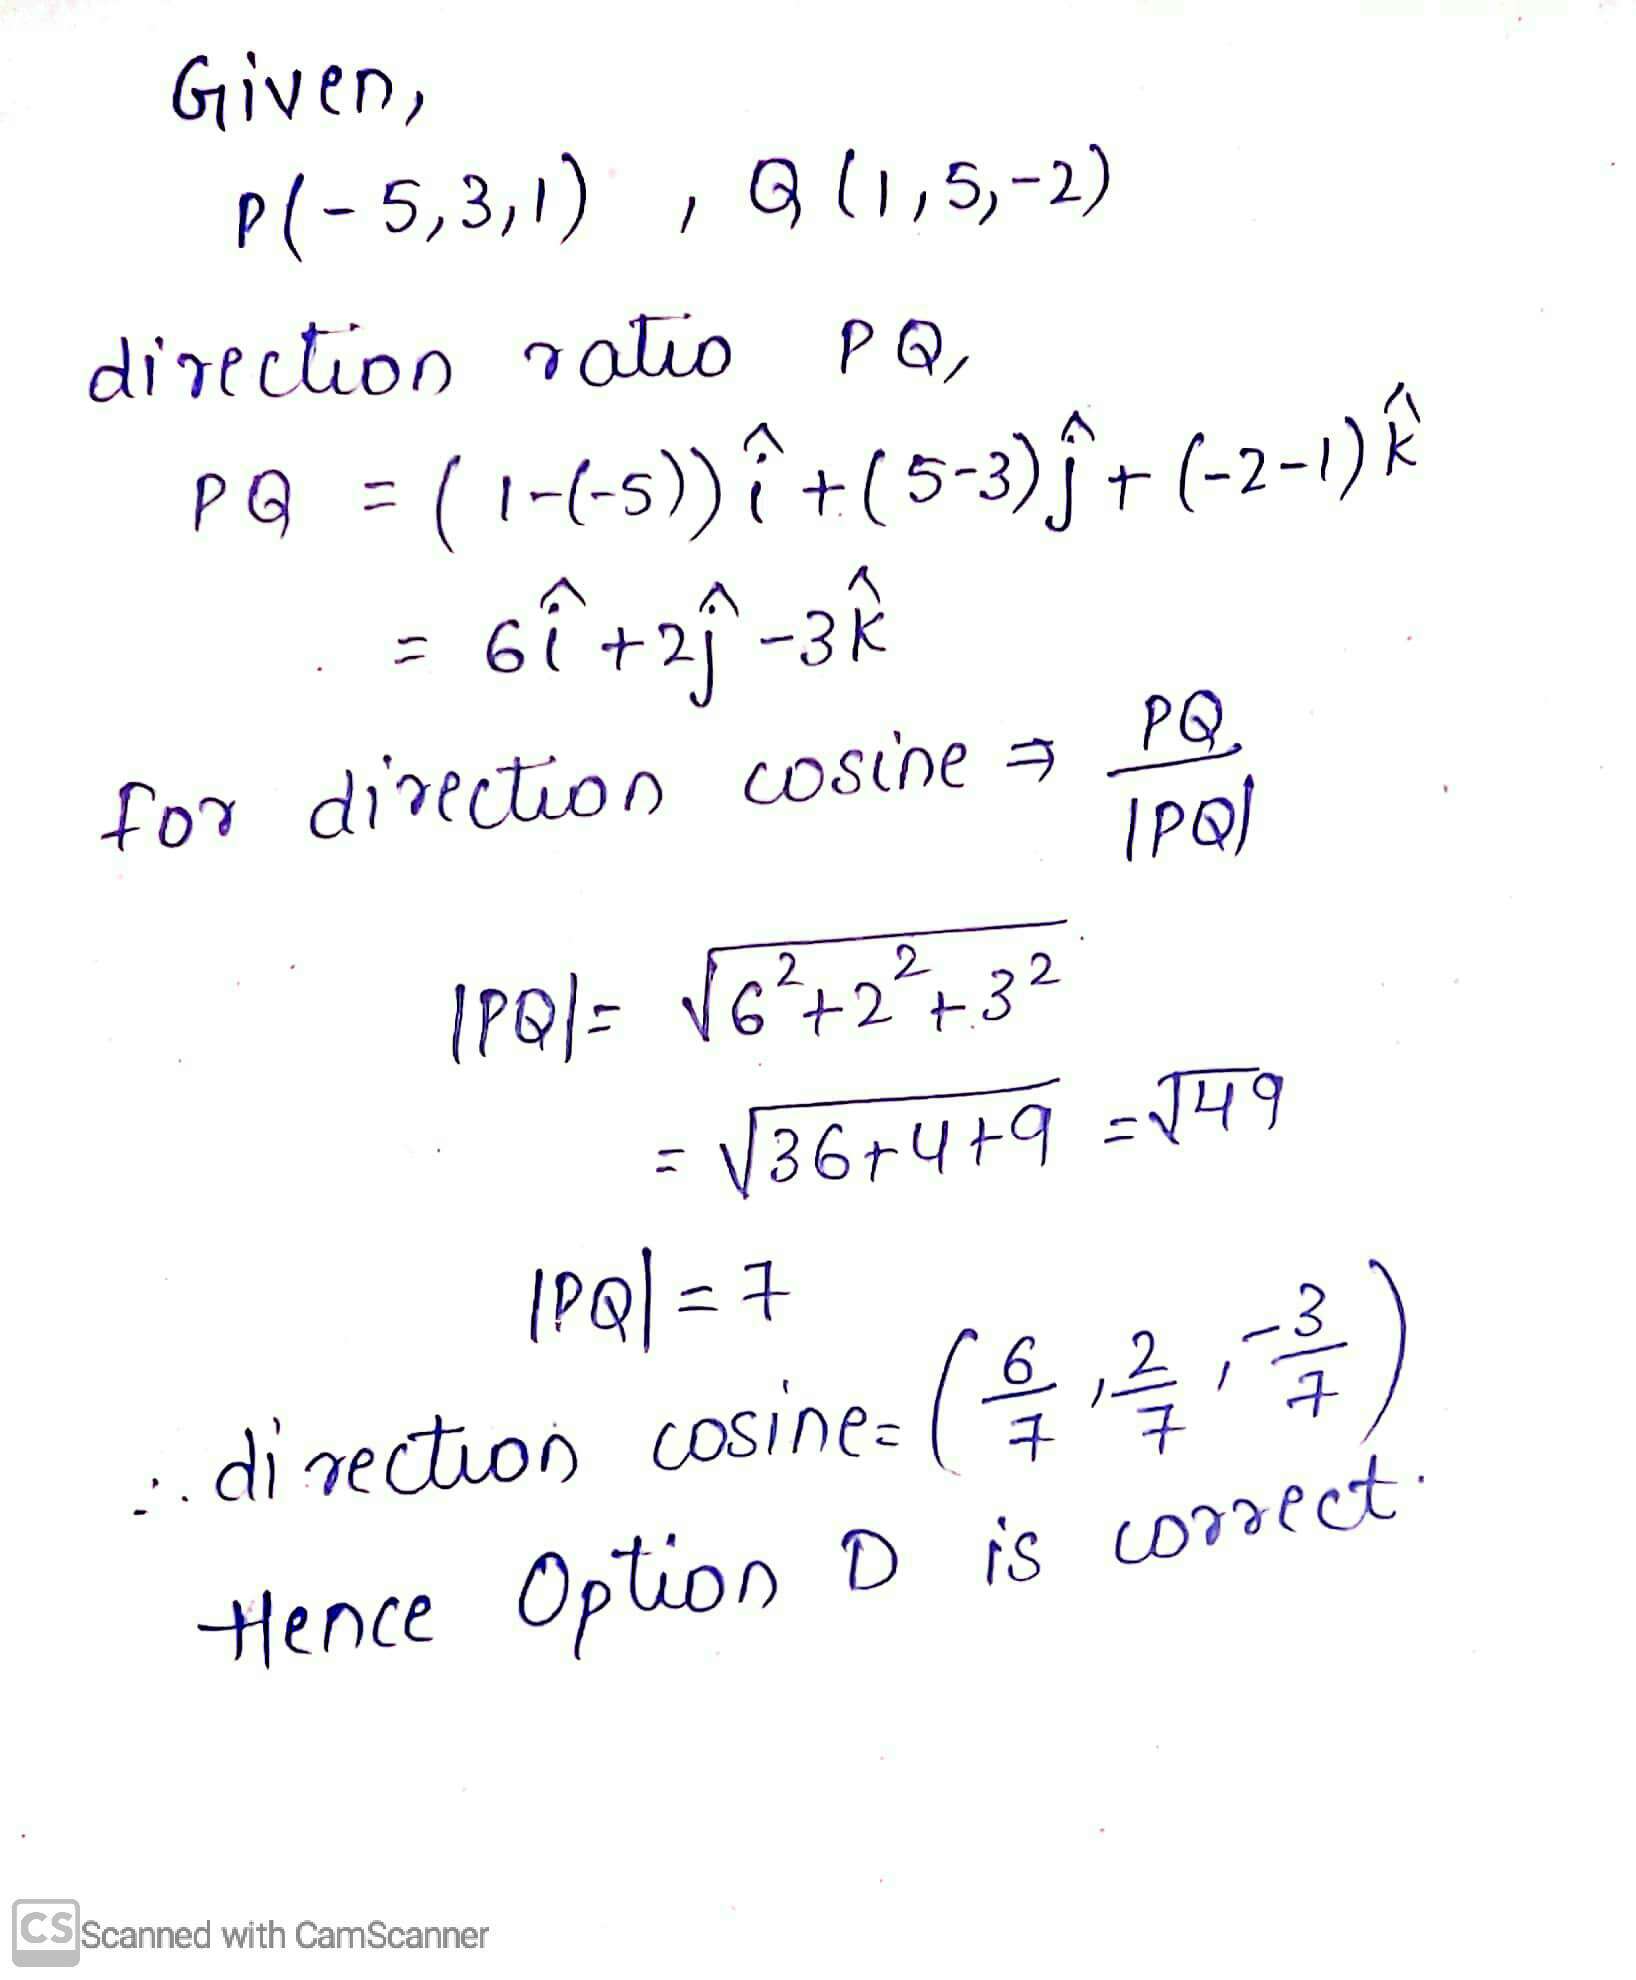 Given,
P(-5,3,1) , Q(1,5,-2)
direction ratio PQ,
PQ = (1-(-5)) î + (5-3) ĵ + (-2-1) k̂
= 6î + 2ĵ - 3k̂
for direction cosine ⇒ PQ/|PQ|
|PQ| = √(6² + 2² + 3²)
= √(36+4+9) = √49
|PQ| = 7
∴ direction cosine = (6/7, 2/7, -3/7)
Hence Option D is correct.
CS Scanned with CamScanner